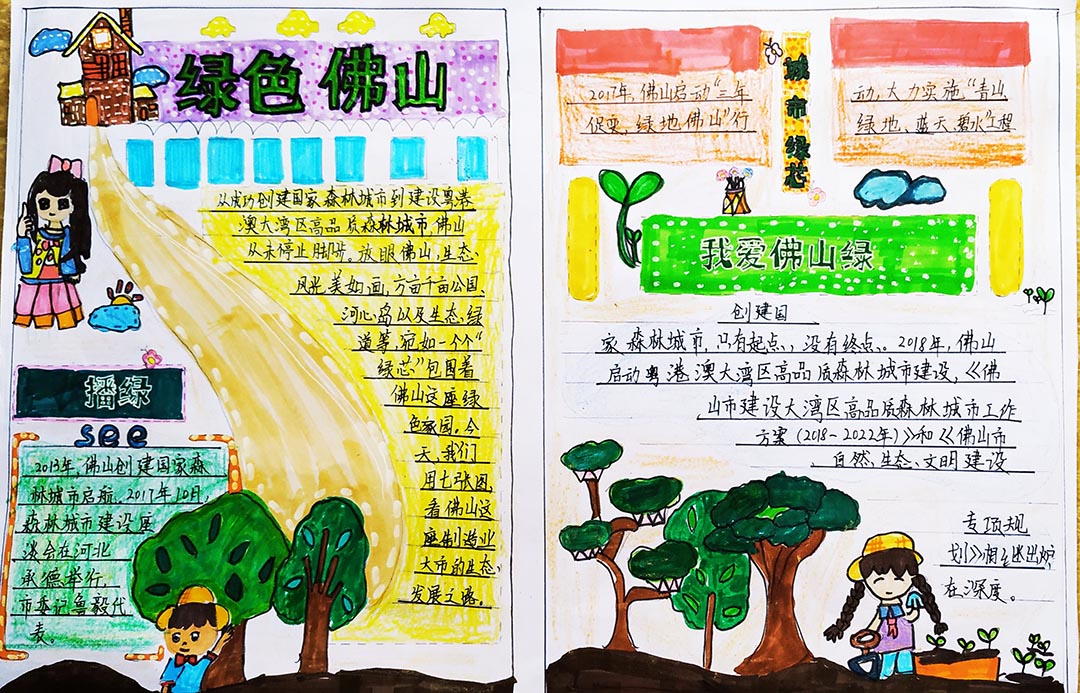 绿色佛山
从成功创建国家森林城市到建设粤港
澳大湾区高品质森林城市,佛山
从未停止脚步。放眼佛山,生态、
风光美如画,万亩千亩公园、
河心岛以及生态绿
道等,宛如一个个“
绿芯”包围着
佛山这座绿
色家园。今
天,我们
用七张图,
看佛山这
座制造业
大市的生态、
发展之路。
播绿
see
2013年,佛山创建国家森
林城市启航。2017年10月,
森林城市建设座
谈会在河北
承德举行,
市委记鲁毅代
表。
城市绿芯
2017年,佛山启动“三年
促变、绿地佛山”行
动,大力实施“青山
绿地、蓝天、碧水”工程
我爱佛山绿
创建国
家森林城市,只有起点、没有终点。2018年,佛山
启动粤港澳大湾区高品质森林城市建设,《佛
山市建设大湾区高品质森林城市工作
方案(2018-2022年)》和《佛山市
自然、生态、文明建设
专项规
划》相继出炉,
在深度。